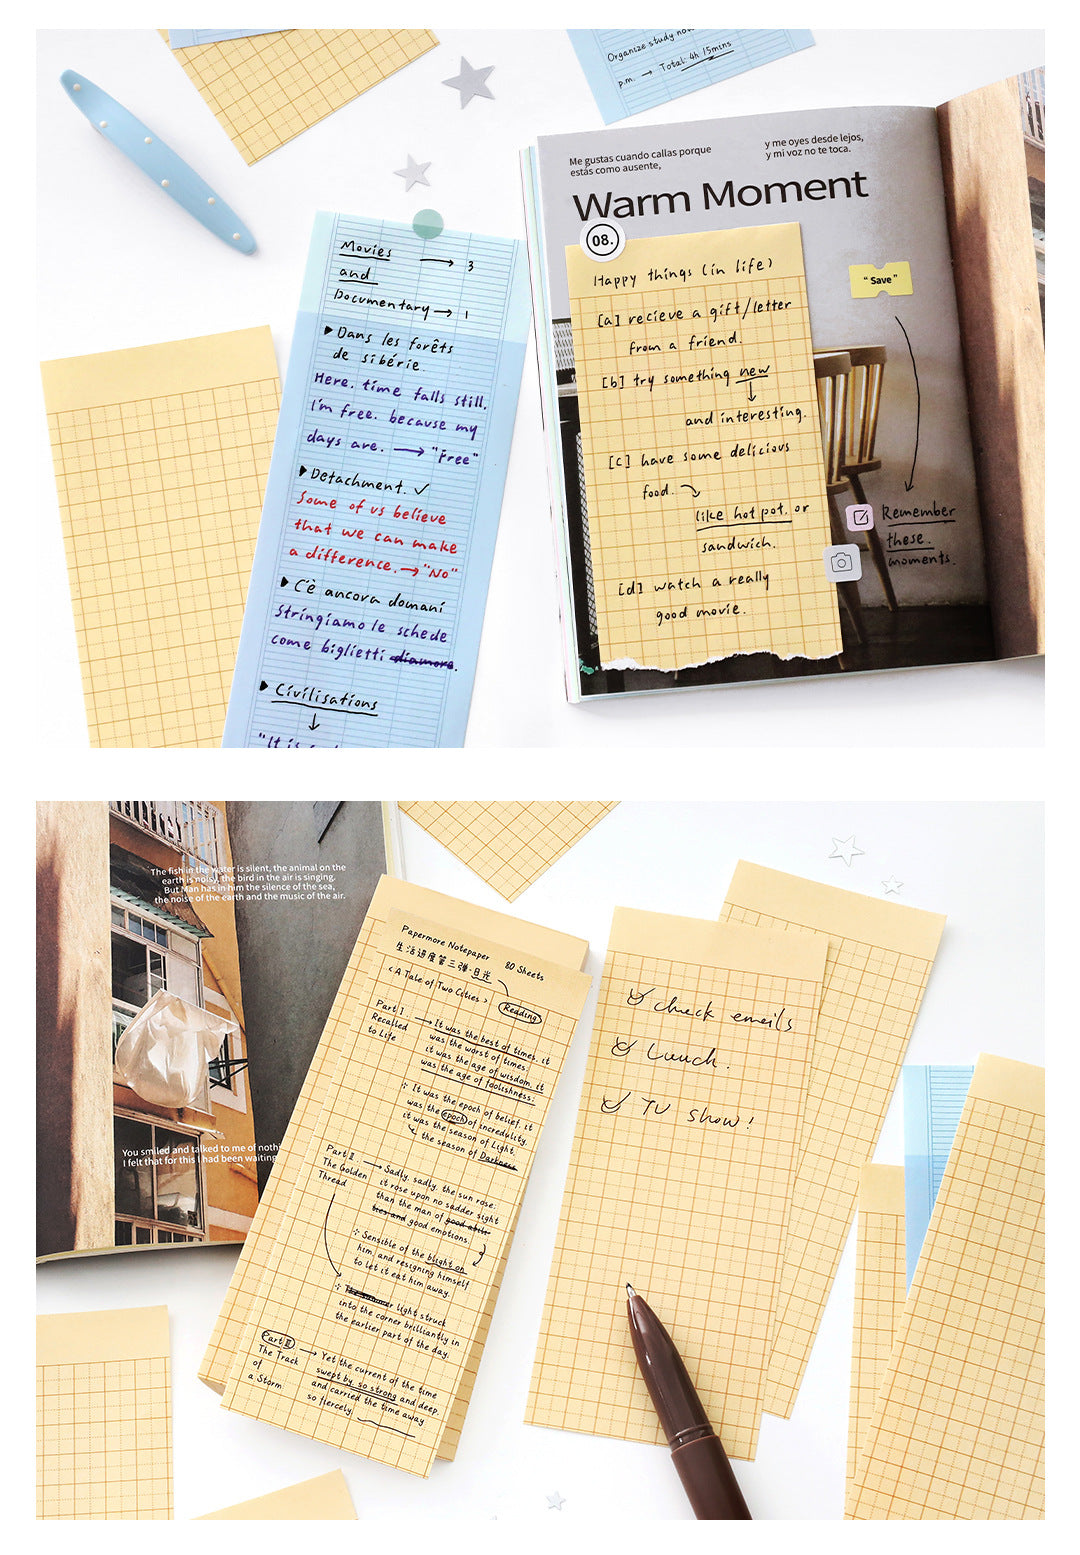 Organize study
p.m. → Total 4h 15mins
Me gustas cuando callas porque
estás como ausente,
y me oyes desde lejos,
y mi voz no te toca.
Warm Moment
08.
"Save"
Happy things (in life)
[a] recieve a gift/letter
from a friend.
[b] try something new
↓
and interesting.
[c] have some delicious
food.
like hot pot. or
sandwich.
[d] watch a really
good movie.
Remember
these.
moments.
Movies → 3
and
Documentary → 1
▶ Dans les forêts
de sibérie.
Here. time falls still.
I'm free. because my
days are. → "free"
▶ Detachment. ✓
Some of us believe
that we can make
a difference. → "No"
▶ C'è ancora domani
Stringiamo le schede
come biglietti diamore.
▶ Civilisations
↓
"It is
The fish in the water is silent, the animal on the
earth is noisy, the bird in the air is singing.
But Man has in him the silence of the sea,
the noise of the earth and the music of the air.
You smiled and talked to me of
I felt that for this I had been waiting
Papermore Notepaper 80 Sheets
生活過度第三彈·日光
<A Tale of Two Cities>
Reading
Part I → It was the best of times. it
Recalled was the worst of times.
to Life it was the age of wisdom. it
was the age of foolishness:
It was the epoch of belief. it
was the epoch of incredulity.
it was the season of Light.
the season of Darkness
Part II → Sadly. sadly. the sun rose:
The Golden it rose upon no sadder sight
Thread than the man of good abili-
ties and good emotions.
Sensible of the blight on
him. and resigning himself
to let it eat him away.
light struck
into the corner brilliantly in
the earlier part of the day.
Part III → Yet the current of the time
The Track swept by. so strong and deep.
of and carried the time away
a Storm. so fiercely.
check emails
Lunch.
TV show!